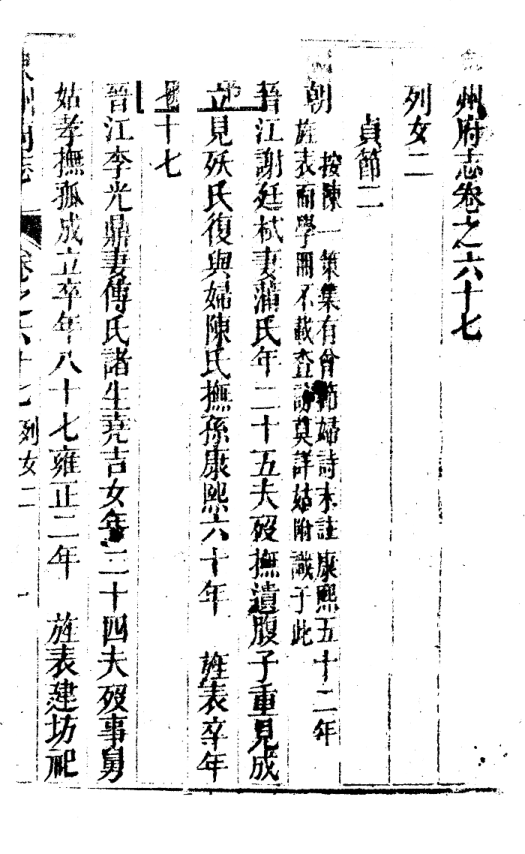 州府志卷之六十七
列女二
貞節二
朝
按陳一策集有曾節婦詩末註康熙五十二年
旌表而學冊不載查訪莫詳姑附識于此
晉江謝廷栻妻蒲氏年二十五夫歿撫遺腹子重見成
立見歿氏復與婦陳氏撫孫康熙六十年 旌表卒年
七十七
晉江李光鼎妻傅氏諸生堯吉女年二十四夫歿事舅
姑孝撫孤成立卒年八十七雍正二年 旌表建坊祀
州府志 卷之六十七 列女二 一